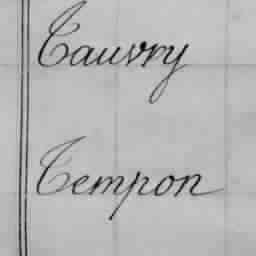 Tauvry
Tempon